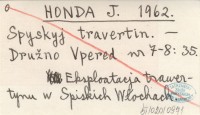 HONDA J. 1962.
Spyskyj travertin. —
Družno Vpered nr 7-8: 35.
Eksploatacja trawer-
tynu w Spiskich Włochach.